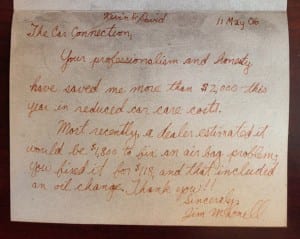 Kevin & David
11 May 06
The Car Connection,
Your professionalism and honesty
have saved me more than $2,000 this
year in reduced car care costs.
Most recently, a dealer estimated it
would be $1,800 to fix an air bag problem;
you fixed it for $118, and that included
an oil change. Thank you!!
Sincerely,
Jim